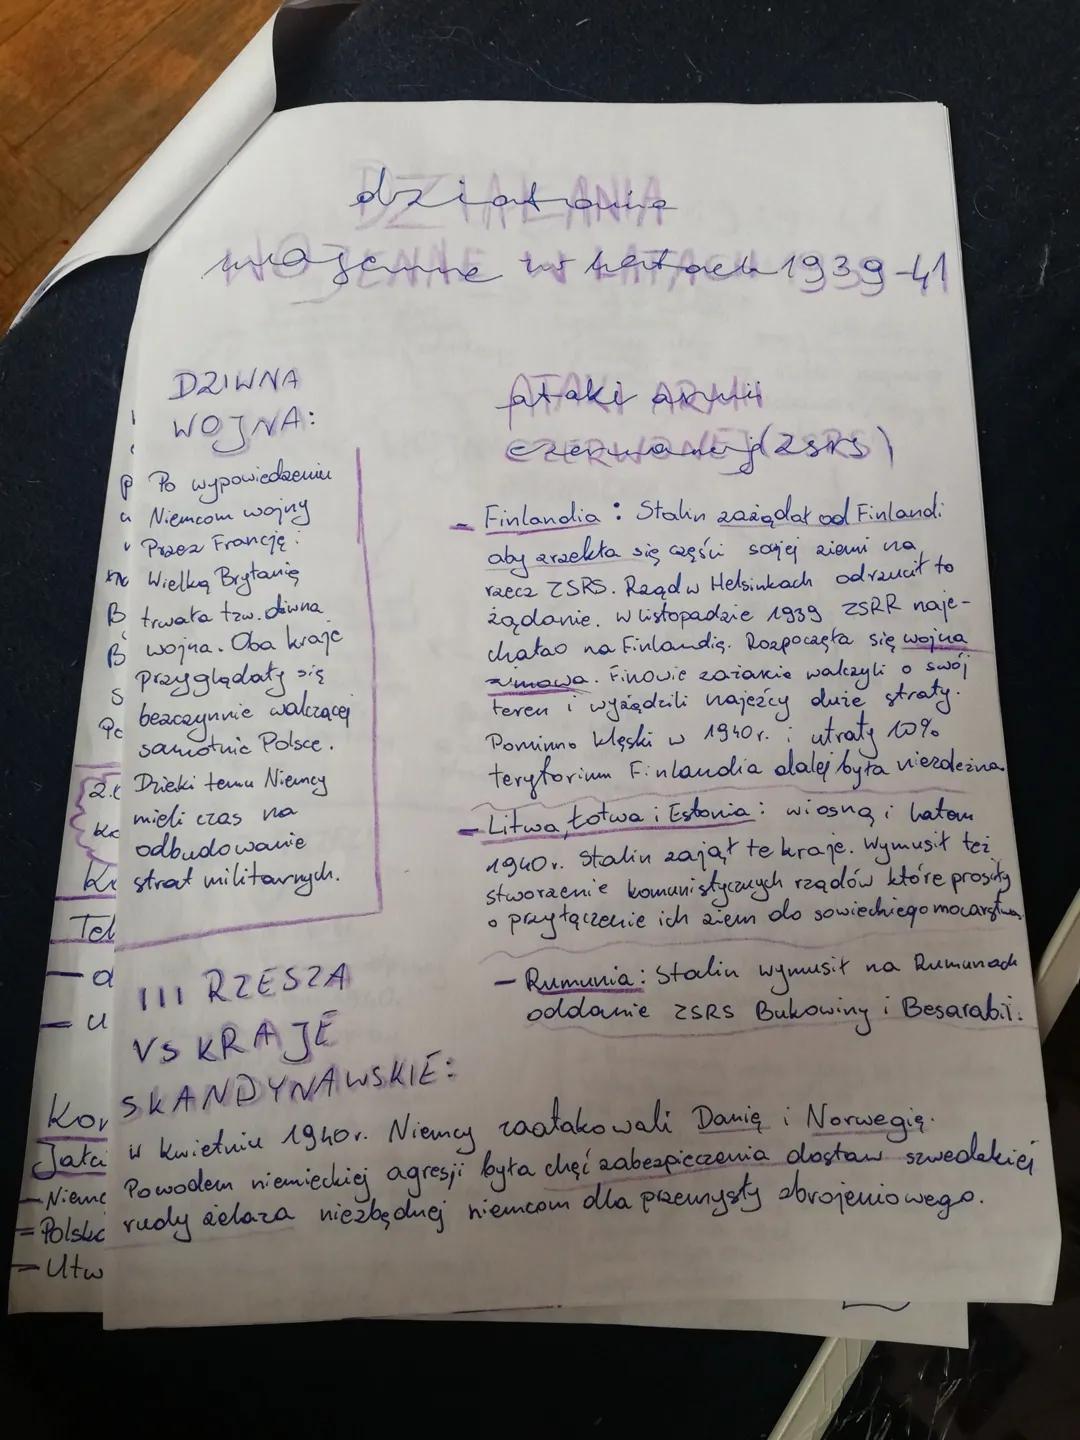 działania
wojenne w latach 1939-41
DZIWNA
WOJNA:
Po wypowiedzeniu
Niemcom wojny
Przez Francję i
Wielką Brytanię
trwała tzw. dziwna
wojna. Oba kraje
przyglądały się
bezczynnie walczącej
samotnie Polsce.
Dzieki temu Niemcy
mieli czas na
odbudowanie
strat militarnych.
ataki armii
czerwonej (ZSRS)
- Finlandia: Stalin zażądał od Finlandi
aby zrzekła się części swojej ziemi na
rzecz ZSRS. Rząd w Helsinkach odrzucił to
żądanie. w listopadzie 1939 ZSRR naje-
chało na Finlandię. Rozpoczęła się wojna
zimowa. Finowie zażarcie walczyli o swój
teren i wyżądzili najeźcy duże straty.
Pomimo klęski w 1940r. i utraty 10%
terytorium Finlandia dalej była niezależna
- Litwa, Łotwa i Estonia: wiosną i latem
1940r. Stalin zajął te kraje. Wymusił też
stworzenie komunistycznych rządów które prosiły
o przyłączenie ich ziem do sowieckiego mocarstwa
- Rumunia: Stalin wymusił na Rumunach
oddanie ZSRS Bukowiny i Besarabii.
III RZESZA
VS KRAJE
SKANDYNAWSKIE:
w kwietniu 1940r. Niemcy zaatakowali Danię i Norwegię.
Powodem niemieckiej agresji była chęć zabezpieczenia dostaw szwedzkiej
rudy żelaza niezbędnej niemcom dla przemysły zbrojeniowego.
Tel
Kor
Jałci
- Niemc
- Polska
- Utw